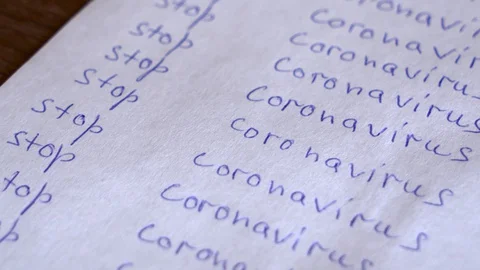 coronavir
stop coronaviru
stop coronavirus
stop coronavirus
stop coronavirus
stop coronavirus
stop coronavirus
top corona